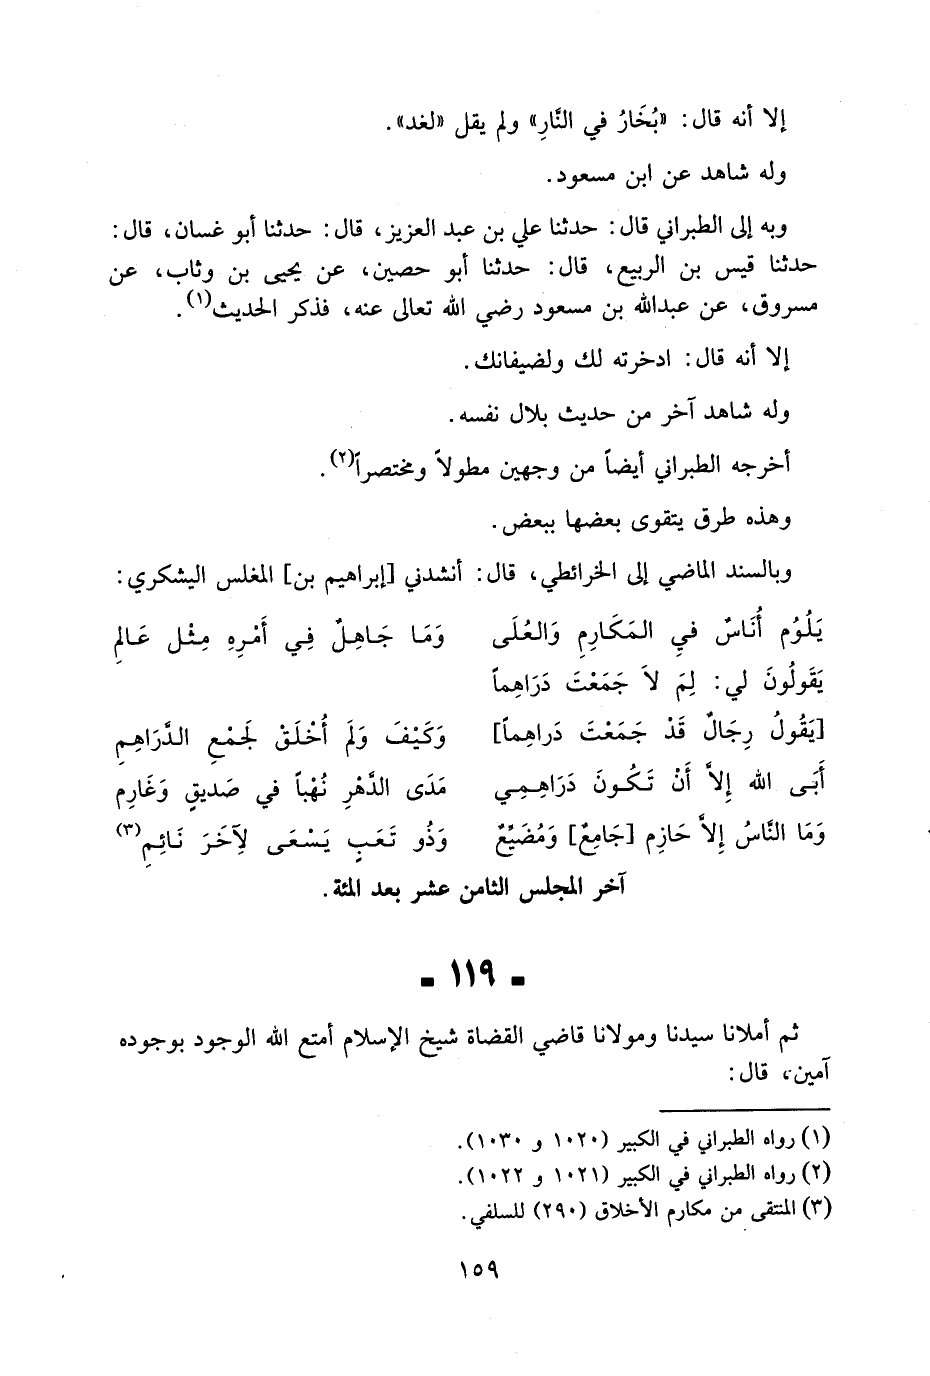 إلا أنه قال: «بُخَارُ في النَّارِ» ولم يقل «لغد».
وله شاهد عن ابن مسعود.
وبه إلى الطبراني قال: حدثنا علي بن عبد العزيز، قال: حدثنا أبو غسان، قال:
حدثنا قيس بن الربيع، قال: حدثنا أبو حصين، عن يحيى بن وثاب، عن
مسروق، عن عبدالله بن مسعود رضي الله تعالى عنه، فذكر الحديث(١).
إلا أنه قال: ادخرته لك ولضيفانك.
وله شاهد آخر من حديث بلال نفسه.
أخرجه الطبراني أيضاً من وجهين مطولاً ومختصراً(٢).
وهذه طرق يتقوى بعضها ببعض.
وبالسند الماضي إلى الخرائطي، قال: أنشدني [إبراهيم بن] المغلس اليشكري:
يَلُوُم أُنَاسٌ في المَكَارِمِ وَالعُلَى وَمَا جَاهِلٌ فِي أَمْرِهِ مِثْل عَالِمِ
يَقَولُونَ لي: لِمَ لاَ جَمَعْتَ دَرَاهِماً
[يَقُولُ رِجَالٌ قَدْ جَمَعْتَ دَراهِماً] وَكَيْفَ وَلَم أُخْلَقْ لَجمْعِ الدَّرَاهِمِ
أَبَى الله إِلاَّ أَنْ تَكُونَ دَرَاهِمِي مَدَى الدَّهْرِ نُهْباً في صَديقٍ وَغَارِمِ
وَمَا النَّاسُ إِلاَّ حَازِم [جَامِعٌ] وَمُضَيِّعٌ وَذُو تَعَبٍ يَسْعَى لِآخَرَ نَائِمِ(٣)
آخر المجلس الثامن عشر بعد المئة.
- ١١٩ -
ثم أملانا سيدنا ومولانا قاضي القضاة شيخ الإسلام أمتع الله الوجود بوجوده
آمين، قال:
(١) رواه الطبراني في الكبير (١٠٢٠ و ١٠٣٠).
(٢) رواه الطبراني في الكبير (١٠٢١ و ١٠٢٢).
(٣) المنتقى من مكارم الأخلاق (٢٩٠) للسلفي.
١٥٩